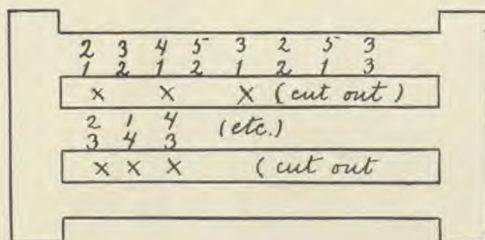 2 3 4 5 3 2 5 3
1 2 1 2 1 2 1 3
x x x (cut out)
2 1 4 (etc.)
3 4 3
x x x (cut out